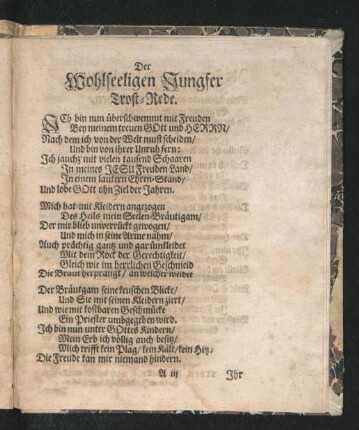 Der
Wohlseeligen Jungfer
Trost-Rede.
ICh bin nun überschwemmt mit Freuden
Bey meinem treuen GOtt und HERRN/
Nach dem ich von der Welt must scheiden/
Und bin von ihrer Unruh fern:
Ich jauchz mit vielen tausend Schaaren
In meines JESU Freuden-Land/
In einem lautern Ehren-Stand/
Und lobe GOtt ohn Ziel der Jahren.
Mich hat mit Kleidern angezogen
Des Heils mein Seelen-Bräutigam/
Der mir blieb unverrückt gewogen/
Und mich in seine Arme nahm/
Auch prächtig gantz und gar ümkleidet
Mit dem Rock der Gerechtigkeit/
Gleich wie im herrlichen Geschmeid
Die Braut herprangt/ an welcher weidet
Der Bräutgam seine keuschen Blicke/
Und Sie mit seinen Kleidern ziert/
Und wie mit kostbaren Geschmücke
Ein Priester umbgegeben wird.
Ich bin nun unter GOttes Kindern/
Mein Erb ich völlig auch besitz/
Mich trifft kein Plag/ kein Kält/ kein Hitz/
Die Freude kan mir niemand hindern.
A iij Ihr